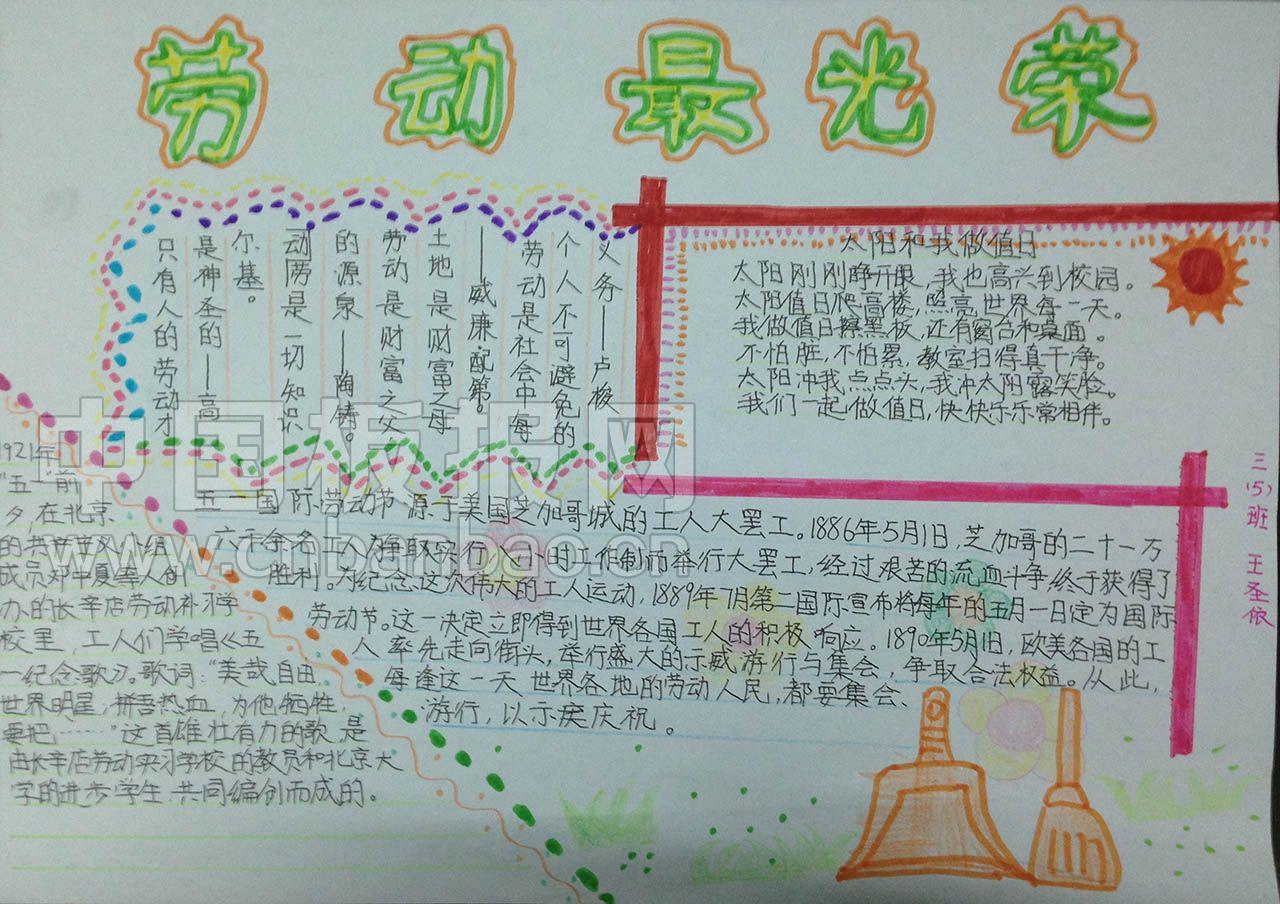 劳动最光荣
只有人的劳动才
是神圣的——高
尔基。
动劳是一切知识
的源泉——陶铸。
劳动是财富之父
土地是财富之母
——威廉配第。
劳动是社会中每
个人不可避免的
义务——卢梭
太阳和我做值日
太阳刚刚睁开眼,我也高兴到校园。
太阳值日爬高楼,照亮世界每一天。
我做值日擦黑板,还有窗台和桌面。
不怕脏,不怕累,教室扫得真干净。
太阳冲我点点头,我冲太阳露笑脸。
我们一起做值日,快快乐乐常相伴。
三(5)班 王圣依
五一国际劳动节源于美国芝加哥城的工人大罢工。1886年5月1日,芝加哥的二十一万
六千余名工人为争取实行八小时工作制而举行大罢工,经过艰苦的流血斗争,终于获得了
胜利。为纪念这次伟大的工人运动,1889年7月第二国际宣布将每年的五月一日定为国际
劳动节。这一决定立即得到世界各国工人的积极响应。1890年5月1日,欧美各国的工
人率先走向街头,举行盛大的示威游行与集会,争取合法权益。从此,
每逢这一天世界各地的劳动人民,都要集会、
游行,以示庆祝。
1921年
"五一"前
夕,在北京
的共产主义小组
成员邓中夏等人创
办的长辛店劳动补习学
校里,工人们学唱《五
一纪念歌》。歌词:"美哉自由,
世界明星,拼吾热血,为他牺牲,
要把……"这首雄壮有力的歌是
由长辛店劳动实习学校的教员和北京大
学的进步学生共同编创而成的。
中国板报网
www.cnbanbao.cn